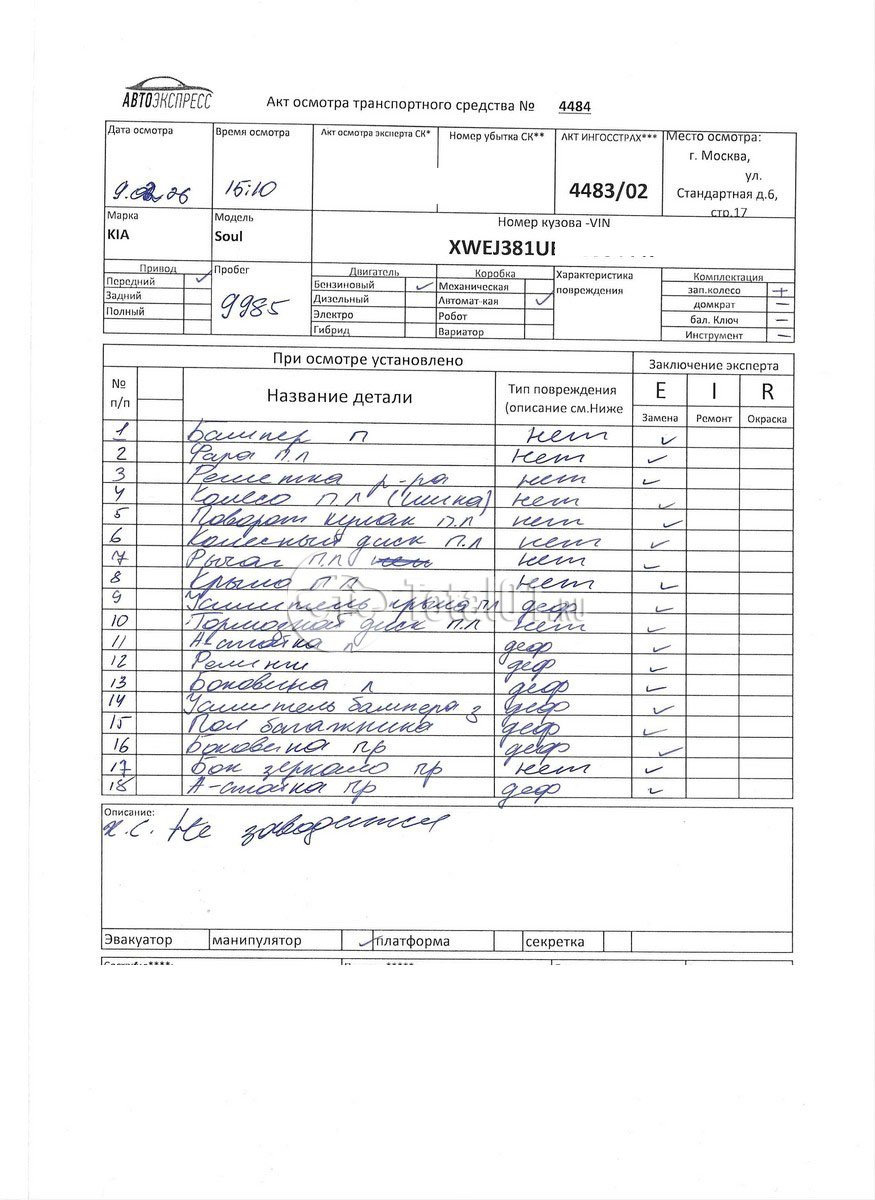 АВТОЭКСПРЕСС
Акт осмотра транспортного средства № 4484
Дата осмотра Время осмотра Акт осмотра эксперта СК* Номер убытка СК** АКТ ИНГОССТРАХ*** Место осмотра:
г. Москва,
ул.
9. 26 15:10 4483/02 Стандартная д.6,
стр.17
Марка Модель Номер кузова -VIN
KIA Soul
XWEJ381U
Привод Пробег Двигатель Коробка Характеристика Комплектация
Передний ✓ Бензиновый ✓ Механическая повреждения зап.колесо +
Задний 9985 Дизельный Автомат-кая ✓ домкрат –
Полный Электро Робот бал. Ключ –
Гибрид Вариатор Инструмент –
При осмотре установлено Заключение эксперта
№ п/п Название детали Тип повреждения (описание см.Ниже E I R
Замена Ремонт Окраска
1 Бампер п нет ✓
2 Фара п.л нет ✓
3 Решетка р-ра нет ✓
4 Колесо п.л (шина) нет ✓
5 Поворот кулак п.л нет ✓
6 Колесный диск п.л нет ✓
7 Рычаг п.л нет ✓
8 Крыло п л нет ✓
9 Усилитель крыла пл деф ✓
10 Тормозной диск п.л нет ✓
11 А-стойка л деф ✓
12 Релинги деф ✓
13 Боковина л деф ✓
14 Усилитель бампера з деф ✓
15 Пол багажника деф ✓
16 Боковина пр деф ✓
17 Бок зеркало пр нет ✓
18 А-стойка пр деф ✓
Total01.RU
Описание:
Х.С. Не заводится
Эвакуатор манипулятор ✓ платформа секретка